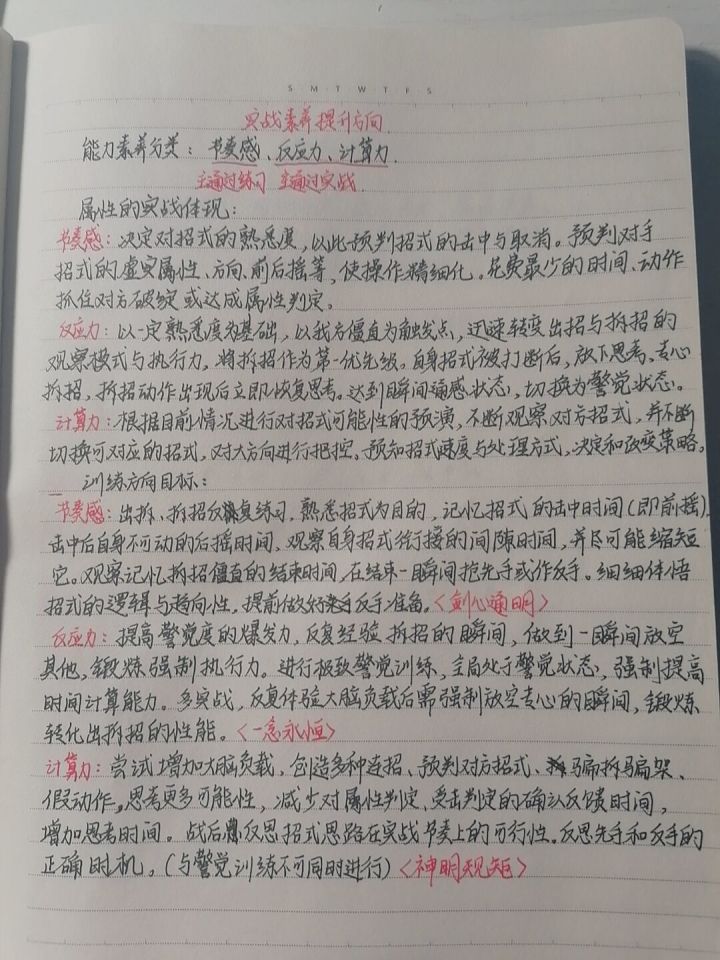 S M T W T F S
实战素养提升方向
能力素养分类：节奏感、反应力、计算力.
主通过练习 主通过实战
属性的实战体现：
节奏感：决定对招式的熟悉度，以此预判招式的击中与取消。预判对手
招式的虚实属性、方向、前后摇等，使操作精细化。花费最少的时间、动作
抓住对方破绽或达成属性判定。
反应力：以一定熟悉度为基础，以我方僵直为触发点，迅速转变出招与拆招的
观察模式与执行力，将拆招作为第一优先级。自身招式被打断后，放下思考、专心
拆招，拆招动作出现后立即恢复思考。达到瞬间通感状态，切换为警觉状态。
计算力：根据目前情况进行对招式可能性的预演，不断观察对方招式，并不断
切换可对应的招式，对大方向进行把控。预知招式速度与处理方式，决定和改变策略。
训练方向目标：
节奏感：出拆、拆招反复练习，熟悉招式为目的，记忆招式的击中时间(即前摇)
击中后自身不可动的后摇时间，观察自身招式衔接的间隙时间，并尽可能缩短
它。观察记忆拆招僵直的结束时间，在结束一瞬间抢先手或作反手。细细体悟
招式的逻辑与趋向性，提前做好反手准备。<剑心通明>
反应力：提高警觉度的爆发力，反复经验拆招的瞬间，做到一瞬间放空
其他，锻炼强制执行力。进行极致警觉训练，全局处于警觉状态，强制提高
时间计算能力。多实战，反复体验大脑负载后需强制放空专心的瞬间，锻炼
转化出拆招的性能。<一念永恒>
计算力：尝试增加大脑负载，创造多种连招、预判对方招式、骗拆骗架、
假动作，思考更多可能性，减少对属性判定、受击判定的确认反馈时间，
增加思考时间。战后反思招式思路在实战节奏上的可行性。反思先手和反手的
正确时机。(与警觉训练不可同时进行)<神明规矩>